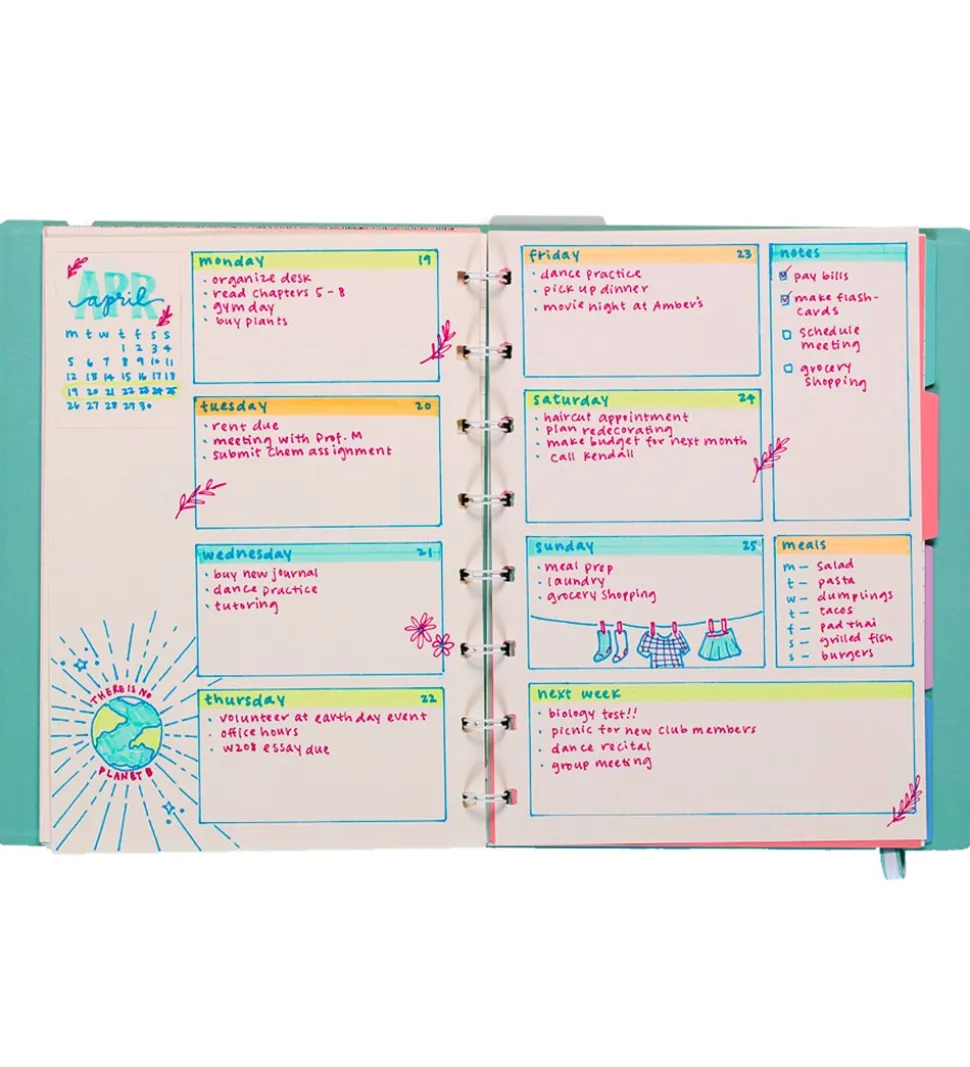 APR
april
m t w t f s s
1 2 3 4
5 6 7 8 9 10 11
12 13 14 15 16 17 18
19 20 21 22 23 24 25
26 27 28 29 30
monday 19
· organize desk
· read chapters 5-8
· gym day
· buy plants
tuesday 20
· rent due
· meeting with Prof. M
· submit chem assignment
wednesday 21
· buy new journal
· dance practice
· tutoring
thursday 22
· volunteer at earth day event
· office hours
· W208 essay due
THERE IS NO
PLANET B
friday 23
· dance practice
· pick up dinner
· movie night at Amber's
saturday 24
· haircut appointment
· plan redecorating
· make budget for next month
· call Kendall
sunday 25
· meal prep
· laundry
· grocery shopping
notes
☑ pay bills
☑ make flash-
cards
☐ schedule
meeting
☐ grocery
shopping
meals
m - salad
t - pasta
w - dumplings
t - tacos
f - pad thai
s - grilled fish
s - burgers
next week
· biology test!!
· picnic for new club members
· dance recital
· group meeting